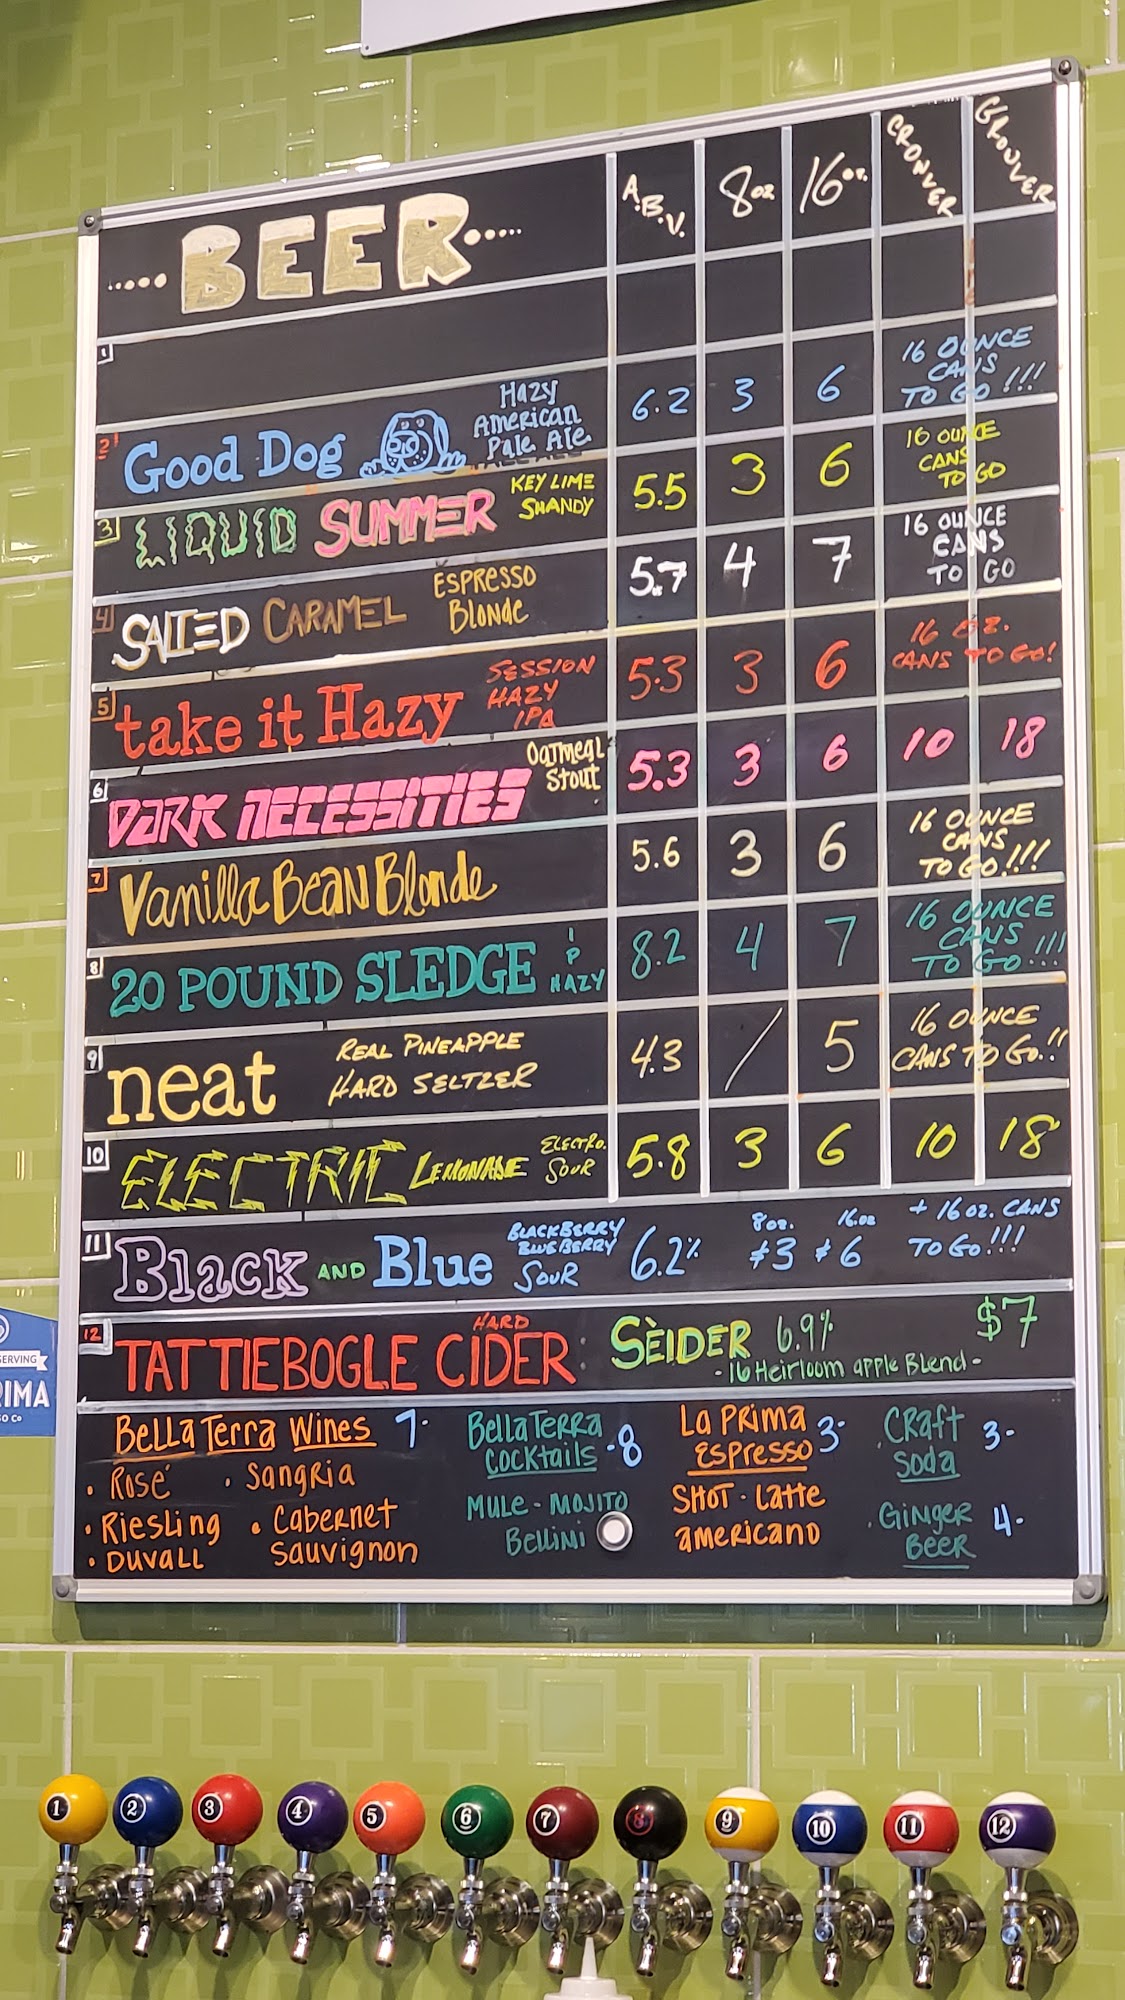 BEER A.B.V. 8oz 16oz. CROWLER GROWLER
1
2 Good Dog Hazy American Pale Ale 6.2 3 6 16 OUNCE CANS TO GO!!!
3 LIQUID SUMMER KEY LIME SHANDY 5.5 3 6 16 OUNCE CANS TO GO
4 SALTED CARAMEL ESPRESSO Blonde 5.7 4 7 16 OUNCE CANS TO GO
5 take it Hazy SESSION HAZY IPA 5.3 3 6 16 OZ. CANS TO GO!
6 DARK NECESSITIES Oatmeal Stout 5.3 3 6 10 18
7 Vanilla Bean Blonde 5.6 3 6 16 OUNCE CANS TO GO!!!
8 20 POUND SLEDGE IP HAZY 8.2 4 7 16 OUNCE CANS TO GO!!!
9 neat REAL PINEAPPLE HARD SELTZER 4.3 / 5 16 OUNCE CANS TO GO!!
10 ELECTRIC LEMONADE ELECTRO. SOUR 5.8 3 6 10 18
11 Black AND Blue BLACKBERRY BLUEBERRY SOUR 6.2% 8oz. $3 16oz $6 + 16 oz. CANS TO GO!!!
12 TATTIEBOGLE HARD CIDER: SÈIDER 6.9% -16 Heirloom apple Blend- $7
Bella Terra Wines 7-
• Rosé • Sangria
• Riesling • Cabernet Sauvignon
• DUVALL
Bella Terra Cocktails -8
MULE - MOJITO
Bellini
La Prima Espresso 3-
SHOT - Latte
americano
Craft Soda 3-
Ginger Beer 4-
SERVING
RIMA
SO Co
1 2 3 4 5 6 7 8 9 10 11 12